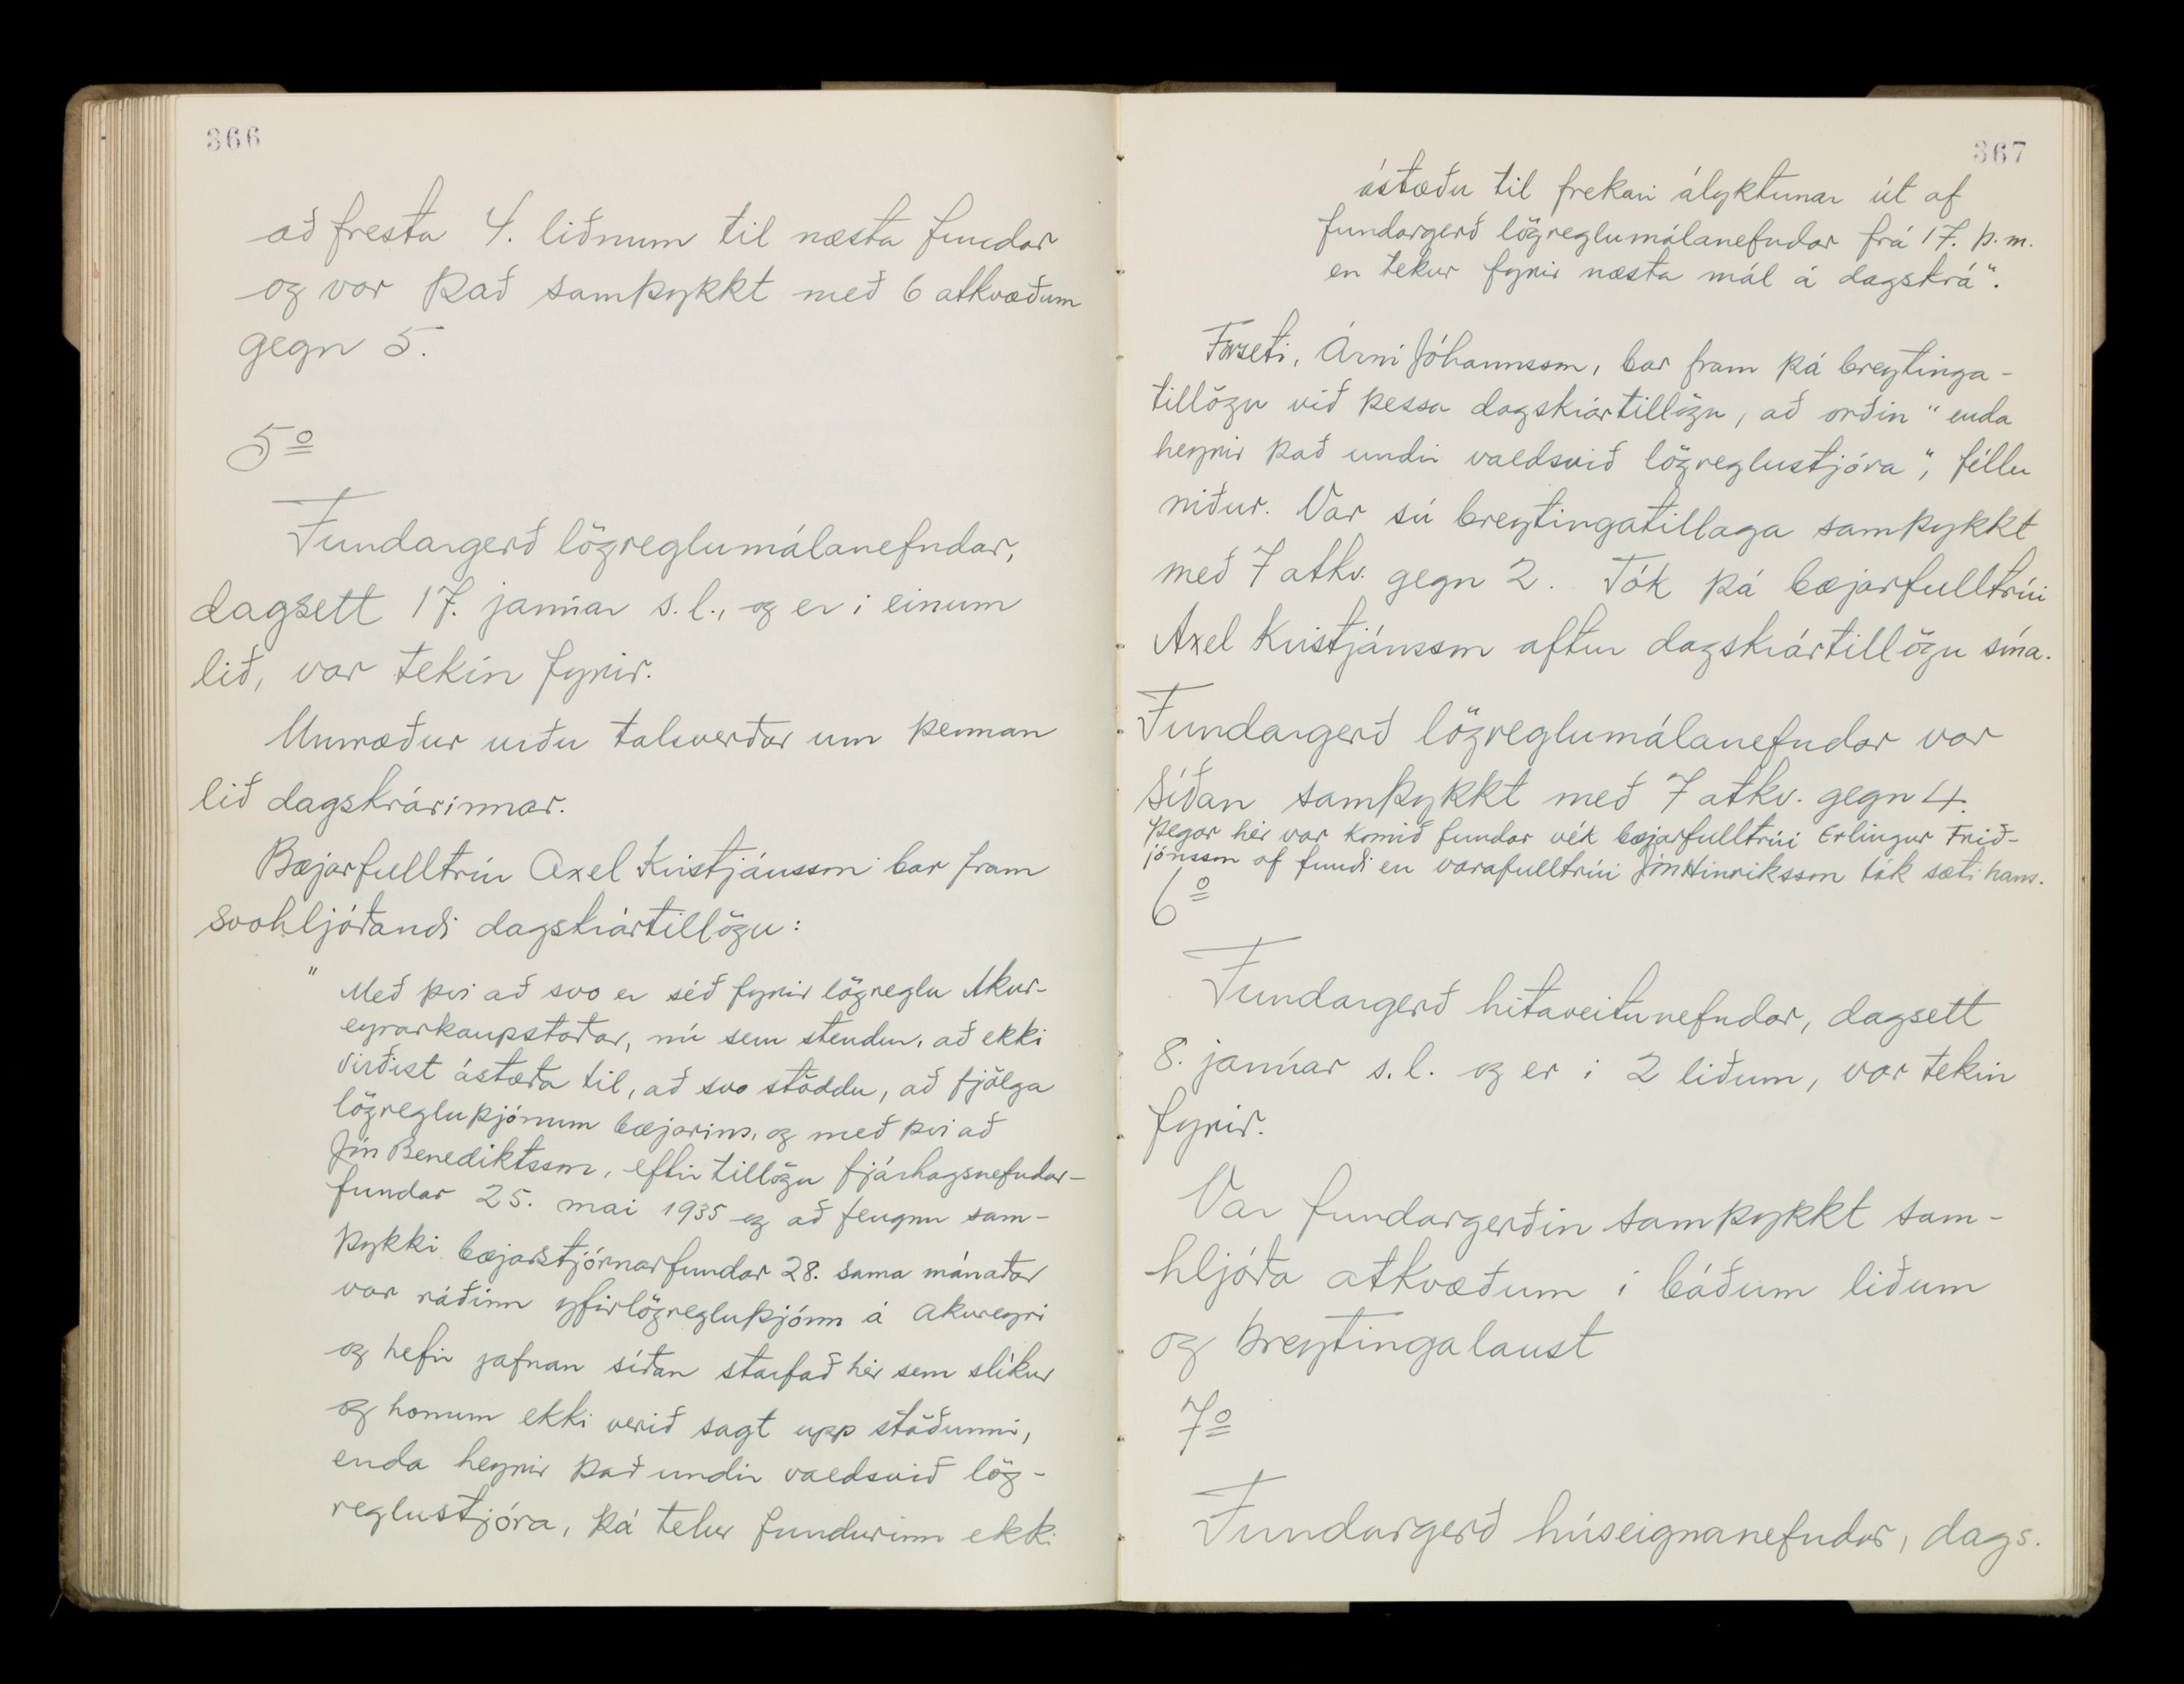 366
að fresta 4. liðnum til næsta fundar
og var það samþykkt með 6 atkvæðum
gegn 5.
5º
Fundargerð lögreglumálanefndar,
dagsett 17. janúar s.l., og er í einum
lið, var tekin fyrir.
Umræður urðu talsverðar um þennan
lið dagskrárinnar.
Bæjarfulltrúi Axel Kristjánsson bar fram
svohljóðandi dagskrártillögu:
" Með því að svo er séð fyrir lögreglu Akur-
eyrarkaupstaðar, nú sem stendur, að ekki
virðist ástæða til, að svo stöddu, að fjölga
lögregluþjónum bæjarins, og með því að
Jón Benediktsson, eftir tillögu fjárhagsnefndar-
fundar 25. maí 1935 og að fengnu sam-
þykki bæjarstjórnarfundar 28. sama mánaðar
var ráðinn yfirlögregluþjónn á Akureyri
og hefir jafnan síðan starfað hér sem slíkur
og honum ekki verið sagt upp stöðunni,
enda heyrir það undir valdsvið lög-
reglustjóra, þá telur fundurinn ekki
367
ástæðu til frekari ályktunar út af
fundargerð lögreglumálanefndar frá 17. þ.m.
en tekur fyrir næsta mál á dagskrá".
Forseti, Árni Jóhannsson, bar fram þá breytinga-
tillögu við þessa dagskrártillögu, að orðin "enda
heyrir það undir valdsvið lögreglustjóra", féllu
niður. Var sú breytingatillaga samþykkt
með 7 atkv. gegn 2. Tók þá bæjarfulltrúi
Axel Kristjánsson aftur dagskrártillögu sína.
Fundargerð lögreglumálanefndar var
síðan samþykkt með 7 atkv. gegn 4.
Þegar hér var komið fundar vék bæjarfulltrúi Erlingur Frið-
jónsson af fundi en varafulltrúi Jón Hinriksson tók sæti hans.
6º
Fundargerð hitaveitunefndar, dagsett
8. janúar s.l. og er í 2 liðum, var tekin
fyrir.
Var fundargerðin samþykkt sam-
hljóða atkvæðum í báðum liðum
og breytingalaust
7º
Fundargerð húseignanefndar, dags.